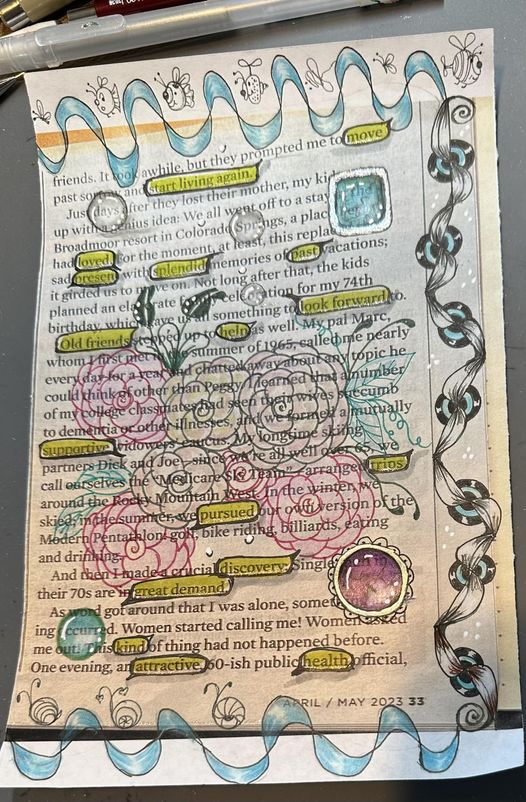 friends. It took awhile, but they prompted me to move
past sorrow and start living again.
Just days after they lost their mother, my kids
up with a genius idea: We all went off to a stay
Broadmoor resort in Colorado Springs, a place
had loved. For the moment, at least, this replaced
sad present with splendid memories of past vacations;
it girded us to move on. Not long after that, the kids
planned an elaborate celebration for my 74th
birthday, which gave us all something to look forward to.
Old friends stepped up to help as well. My pal Marc,
whom I first met summer of 1965, called me nearly
every day for a year and chatted away about any topic he
could think of other than Peggy. I learned that a number
of my college classmates had seen their wives succumb
to dementia or other illnesses, and we formed a mutually
supportive widowers' caucus. My longtime skiing
partners Dick and Joe—since we're all well over 65, we
call ourselves the "Medicare Ski Team"—arranged trips
around the Rocky Mountain West. In the winter, we
skied; in the summer, we pursued our own version of the
Modern Pentathlon: golf, bike riding, billiards, eating
and drinking.
And then I made a crucial discovery: Single
their 70s are in great demand.
As word got around that I was alone,
ing occurred. Women started calling me! Women asked
me out! This kind of thing had not happened before.
One evening, an attractive, 60-ish public health official,
APRIL / MAY 2023 33